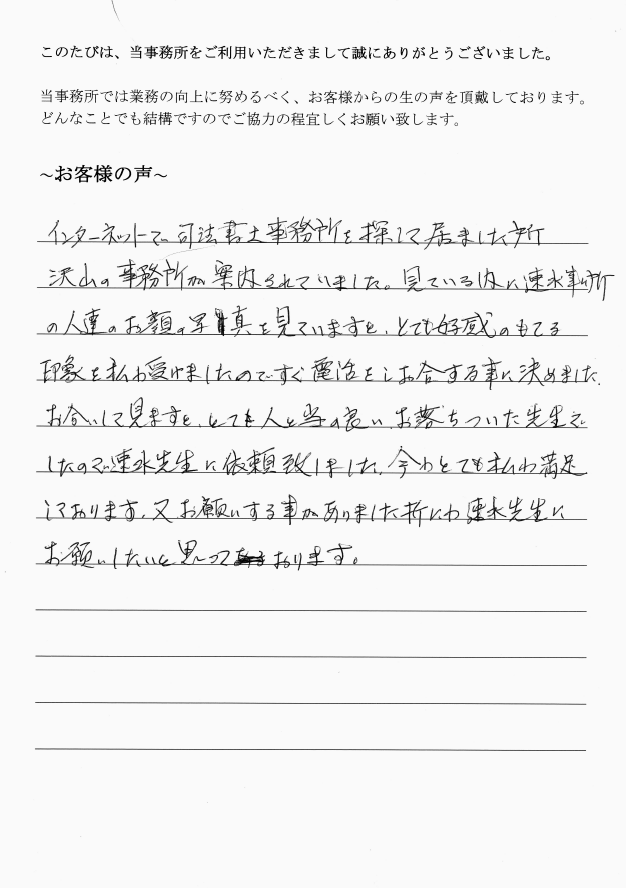 このたびは、当事務所をご利用いただきまして誠にありがとうございました。
当事務所では業務の向上に努めるべく、お客様からの生の声を頂戴しております。
どんなことでも結構ですのでご協力の程宜しくお願い致します。
~お客様の声~
インターネットで司法書士事務所を探して居ました所
沢山の事務所が案内されていました。見ている内に速水事ム所
の人達のお顔の写真を見ていますと、とても好感のもてる
印象を私わ受けましたのですぐ電話をしお合する事に決めました。
お合いして見ますと、とても人と当の良い、お落ちついた先生で
したので速水先生に依頼致しました。今わとても私わ満足
しております。又お願いする事がありました折にわ速水先生に
お願いしたいと思っております。